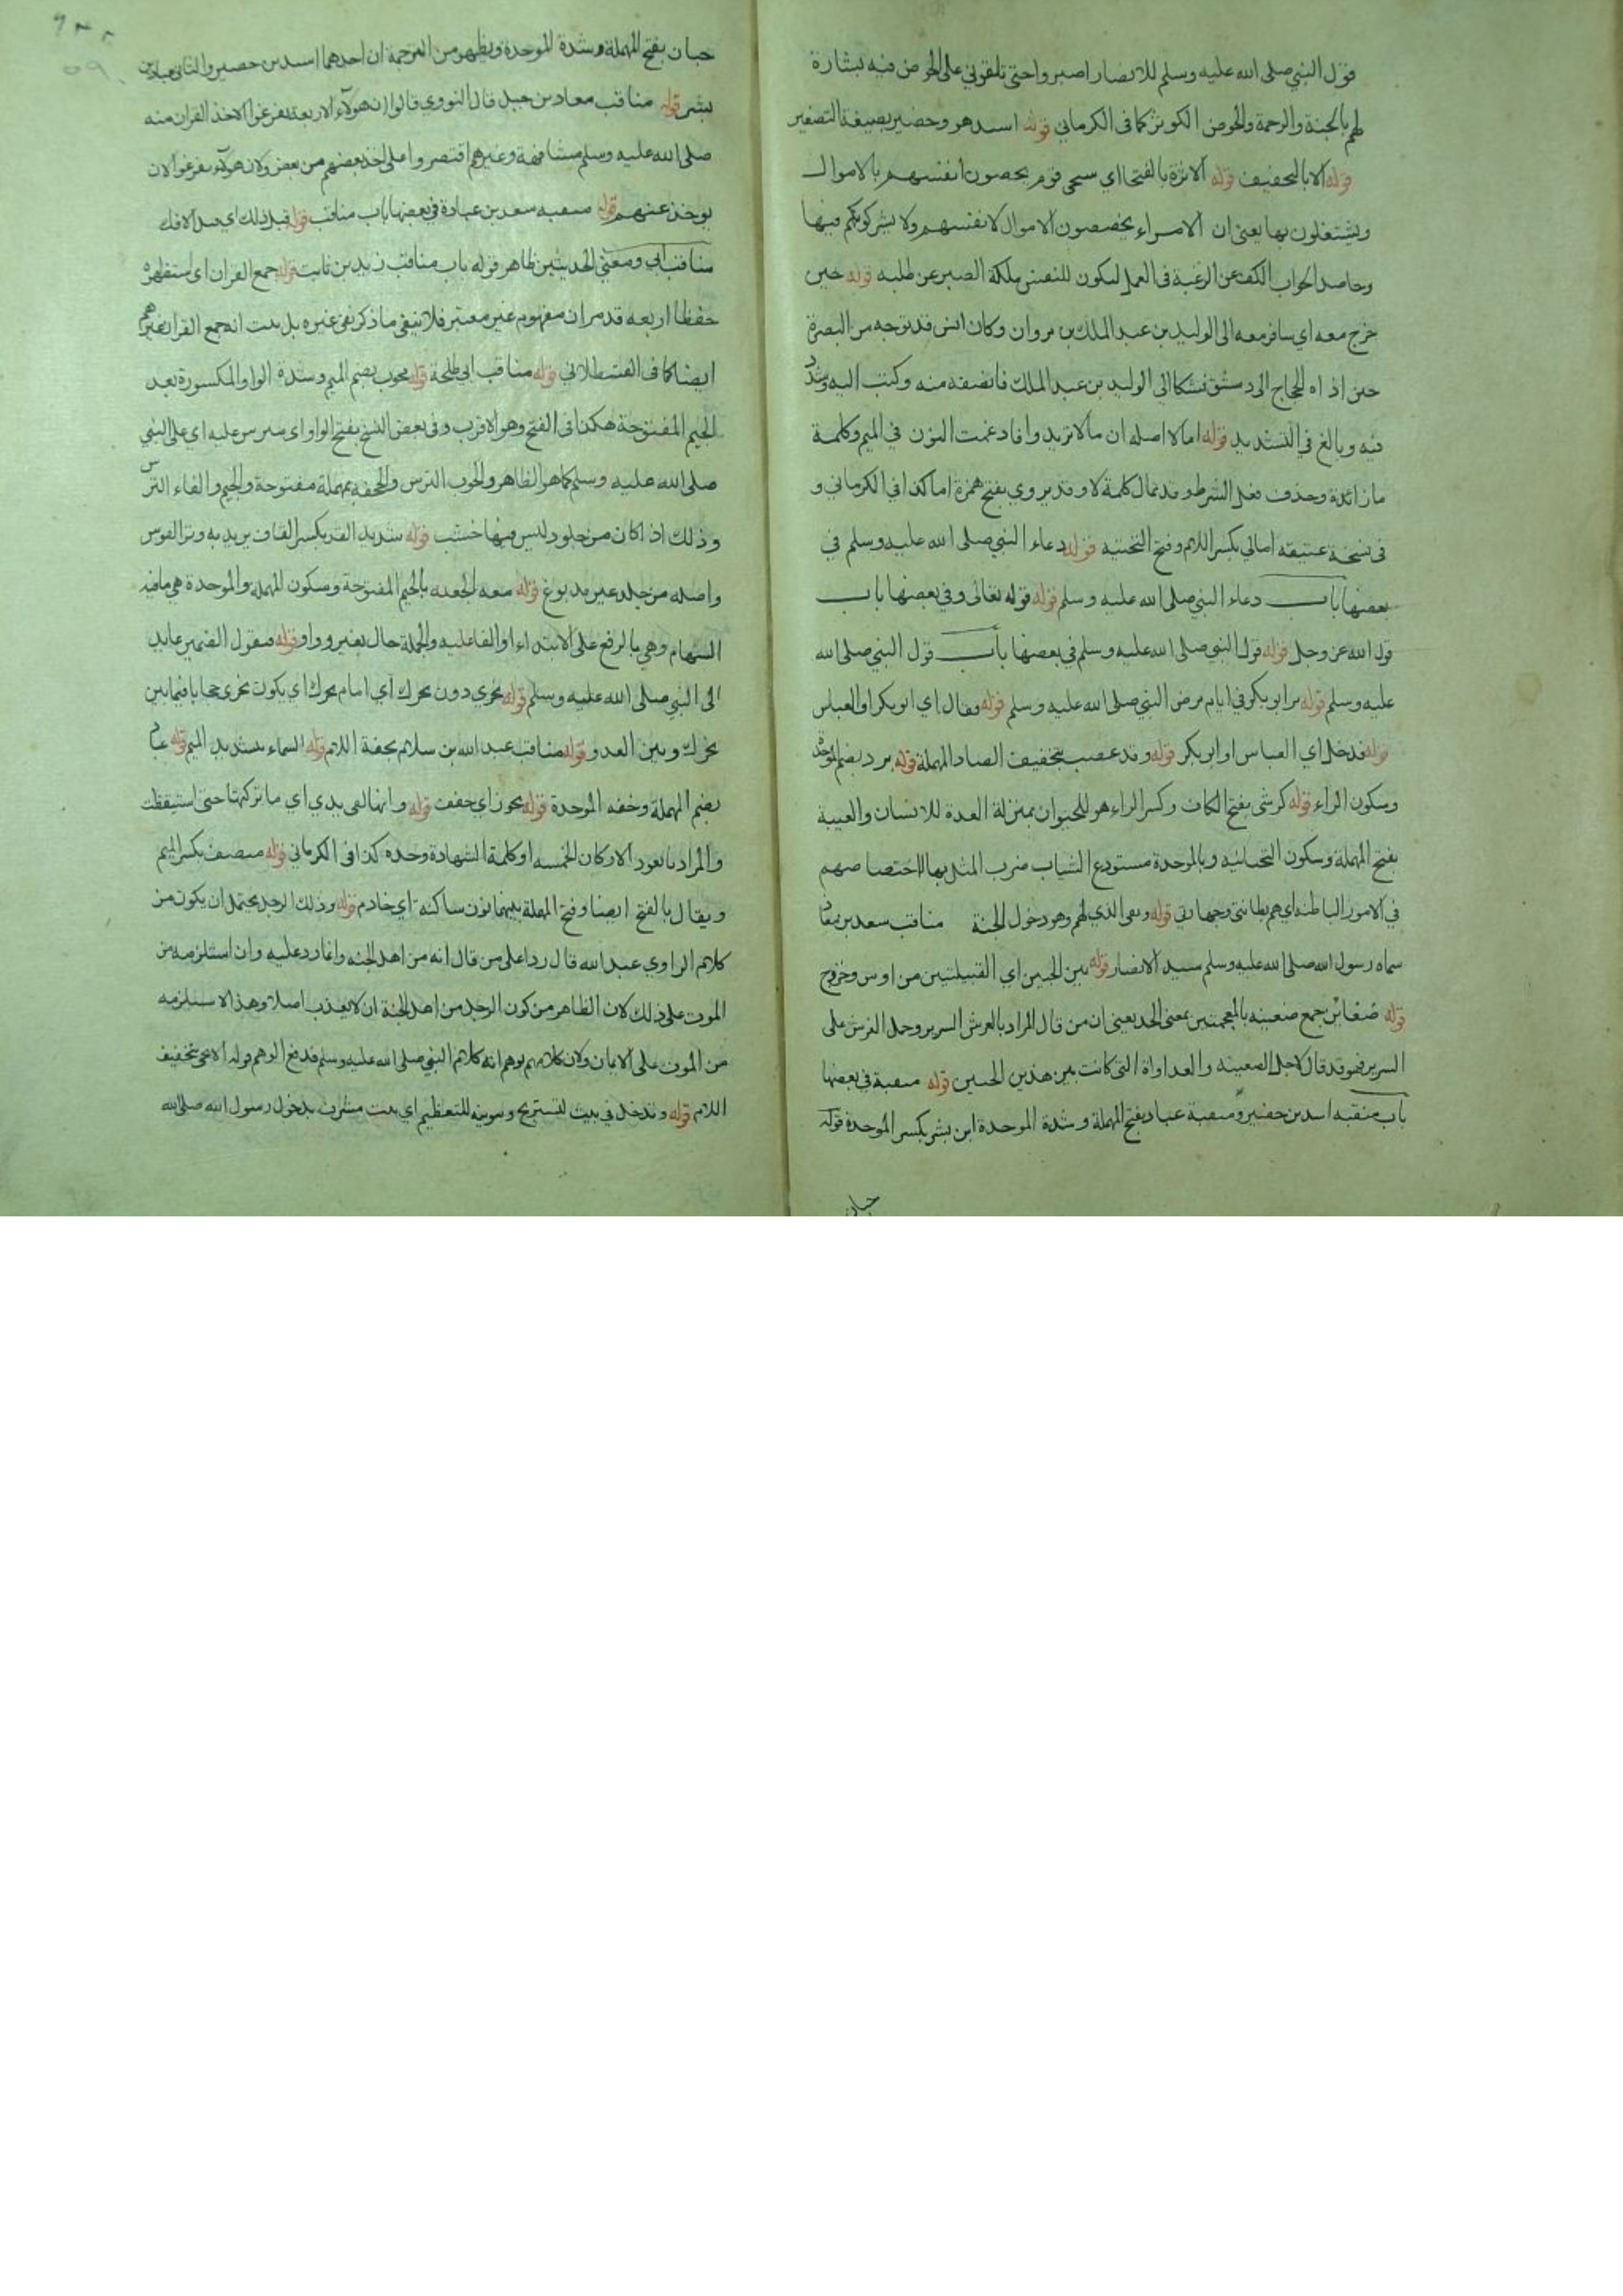 قول النبي صلى الله عليه وسلم للانصار اصبروا حتى تلقوني على الحوض فيه بشارة
لهم بالجنة والرحمة والحوض الكوثر كما في الكرماني قوله اسيد هو وحضير بصيغة التصغير
قوله الا بالتخفيف قوله الاثرة بالفتحا اي سيجي قوم يخصون انفسهم بالاموال
ويشتغلون بها يعني ان الامراء يخصصون الاموال لانفسهم ولا يشركونكم فيها
وحاصل الجواب الكف عن الرغبة في العمل ليكون للنفس ملكة الصبر عن طلبه قوله حين
خرج معه اي سافر معه الى الوليد بن عبد الملك بن مروان وكان انس قد توجه من البصرة
حين اذاه الحجاج الى دمشق فشكا الى الوليد بن عبد الملك فانصفه منه وكتب اليه وشدد
فيه وبالغ في التشديد قوله اما لا اصله ان ما لا تريد وا فادغمت النون في الميم وكلمة
ما زائدة وحذف فعل الشرط وقد تمال كلمة لا وقد يروي بفتح همزة اما كذا في الكرماني و
في نسخة عتيقه امالي بكسر اللام وفتح التحتيه قوله دعاء النبي صلى الله عليه وسلم في
بعضها باب دعاء النبي صلى الله عليه وسلم قوله قوله تعالى وفي بعضها باب
قول الله عز وجل قوله قول النبي صلى الله عليه وسلم في بعضها باب قول النبي صلى الله
عليه وسلم قوله مر ابو بكر في ايام مرض النبي صلى الله عليه وسلم قوله فقال اي ابو بكر او العباس
قوله فدخل اي العباس او ابو بكر قوله وقد عصب بتخفيف الصاد المهملة قوله برد بضم الموحدة
وسكون الراء قوله كرشى بفتح الكاف وكسر الراء هو للحيوان بمنزلة المعدة للانسان والعيبة
بفتح المهملة وسكون التحتانيه وبالموحدة مستودع الثياب ضرب المثل بها لاختصاصهم
في الامور الباطنه اي هم بطانتي وجهازي قوله وبقى الذي لهم وهو دخول الجنة مناقب سعد بن معاذ
سماه رسول الله صلى الله عليه وسلم سيد الانصار قوله بين الحيين اي القبيلتين من اوس وخزرج
قوله ضغائن جمع ضغينه بالمعجمتين بمعنى الحقد يعني ان من قال المراد بالعرش السرير وحمل العرش على
السرير فهو قد قال لاجل الضغينة والعداواة التي كانت بين هذين الحيين قوله منقبة في بعضها
باب منقبه اسيد بن حضير ومنقبة عباد بفتح المهملة وشدة الموحدة ابن بشر بكسر الموحدة قوله
حبان
حبان بفتح المهملة وشدة الموحدة ويظهر من الترجمة ان احدهما اسيد بن حضير والثاني عباد بن
بشر قوله مناقب معاذ بن جبل قال النووي قالوا ان هولاء الاربعة تفرغوا لاخذ القران منه
صلى الله عليه وسلم مشافهة وغيرهم اقتصروا على اخذ بعضهم من بعض ولان هولاء تفرغوا لان
يوخذ عنهم قوله منقبه سعد بن عبادة في بعضها باب مناقب قوله قبل ذلك اي قبل الافك
مناقب ابي ومعنى الحديثين ظاهر قوله باب مناقب زيد بن ثابت قوله جمع القران اي استظهره
حفظا اربعه قد مر ان مفهوم غير معتبر فلا ينفي ما ذكر نفي غيره بل ثبت انه جمع القران غيرهم
ايضا كما في القسطلاني قوله مناقب ابي طلحة قوله مجوب بضم الميم وشدة الواو المكسورة بعد
الجيم المفتوحة هكذا في الفتح وهو الاقرب وفي بعض النسخ بفتح الواو اي مترس عليه اي على النبي
صلى الله عليه وسلم كما هو الظاهر والجوب الترس والحجفة بمهملة مفتوحة والجيم والفاء الترس
وذلك اذا كان من جلود ليس فيها خشب قوله شديد القد بكسر القاف يريد به وتر القوس
واصله من جلد غير مدبوغ قوله معه الجعبه بالجيم المفتوحة وسكون المهملة والموحدة هي ما فيه
السهام وهي بالرفع على الابتداء او الفاعليه والجملة حال بغير وواو قوله فيقول الضمير عايد
الى النبي صلى الله عليه وسلم قوله نحري دون نحرك اي امام نحرك اي يكون نحري حجابا فيما بين
نحرك وبين العدو قوله مناقب عبد الله بن سلام بخفة اللام قوله السماء بتشديد الميم قوله عباد
بضم المهملة وخفه الموحدة قوله تجوز اي خفف قوله وانها لفي يدي اي ما تركتها حتى استيقظت
والمراد بالعود الاركان الخمسه او كلمة الشهادة وحده كذا في الكرماني قوله منصف بكسر الميم
ويقال بالفتح ايضا وفتح المهملة بينهما نون ساكنه اي خادم قوله وذلك الرجل يحتمل ان يكون من
كلام الراوي عبد الله قال ردا على من قال انه من اهل الجنه وانما رد عليه وان استلزمه من
الموت على ذلك لان الظاهر من كون الرجل من اهل الجنة ان لا يعذب اصلا وهذا لا يستلزمه
من الموت على الايمان ولان كلامهم يوهم انه كلام النبي صلى الله عليه وسلم فدفع الوهم قوله الا تجي بتخفيف
اللام قوله وتدخل في بيت لتستريح وتنوينه للتعظيم اي بيت مشرف بدخول رسول الله صلى الله